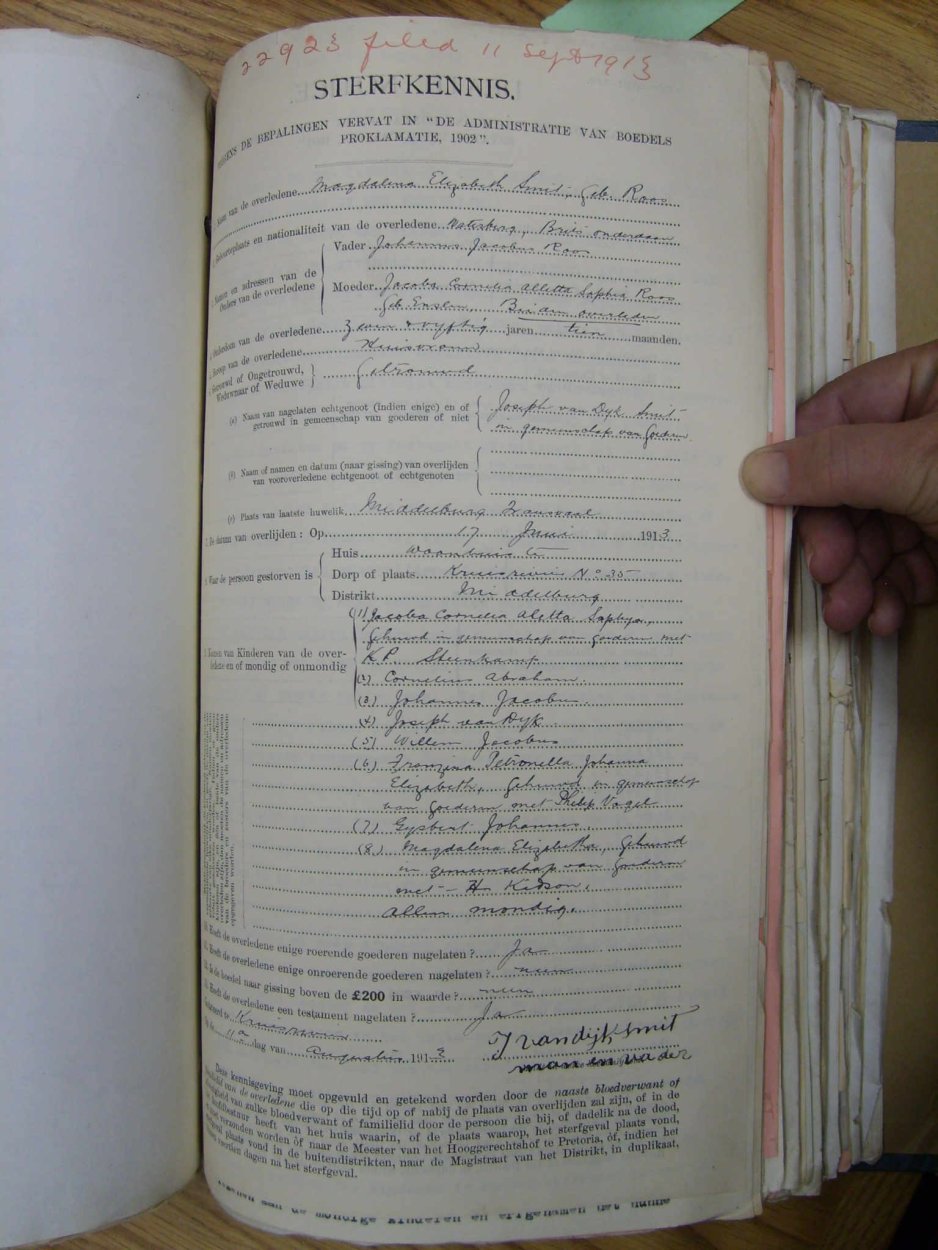 22923 filed 11 Sept 1913
STERFKENNIS.
BEPALINGEN VERVAT IN "DE ADMINISTRATIE VAN BOEDELS
PROKLAMATIE, 1902".
van de overledene Magdalena Elizabeth Smit, Geb. Roos
en nationaliteit van de overledene Waterberg, Brits onderdaan
Namen en adressen van de
Ouders van de overledene
Vader Johannes Jacobus Roos
Moeder Jacoba Cornelia Alletta Sophia Roos
Geb. Enslin, Beiden overleden
Ouderdom van de overledene Zeven & vyftig jaren tien maanden.
Beroep van de overledene Huisvrouw
Getrouwd of Ongetrouwd,
Weduwnaar of Weduwe
Getrouwd
(a) Naam van nagelaten echtgenoot (indien enige) en of
getrouwd in gemeenschap van goederen of niet
Joseph van Dyk Smit
in gemeenschap van Goederen
(b) Naam of namen en datum (naar gissing) van overlijden
van vooroverledene echtgenoot of echtgenoten
(c) Plaats van laatste huwelik Middelburg Transvaal
De datum van overlijden: Op 17 Juni 1913
Waar de persoon gestorven is
Huis Woonhuis te
Dorp of plaats Kruisrivier No 35
Distrikt Middelburg
Namen van Kinderen van de over-
ledene en of mondig of onmondig
(1) Jacoba Cornelia Aletta Sophya,
Gehuwd in gemeenschap van goederen met
K P. Steenkamp
(2) Cornelius Abraham.
(3) Johannes Jacobus.
(4) Joseph van Dyk
(5) Willem Jacobus
(6) Franzina Petronella Johanna
Elizabeth, Gehuwd in gemeenschap
van Goederen met Philip Vogel
(7) Gysbert Johannes
(8) Magdalena Elizabetha, Gehuwd
in gemeenschap van goederen
met H Kidson.
Allen mondig.
Heeft de overledene enige roerende goederen nagelaten? Ja
Heeft de overledene enige onroerende goederen nagelaten? neen
Is de boedel naar gissing boven de £200 in waarde? neen
Heeft de overledene een testament nagelaten? Ja
Kruisrivier
11de dag van Augustus 1913
J van Dijk Smit
man en vader
Deze kennisgeving moet opgevuld en getekend worden door de naaste bloedverwant of
van de overledene die op die tijd op of nabij de plaats van overlijden zal zijn, of in de
van zulke bloedverwant of familielid door de persoon die bij, of dadelik na de dood,
heeft van het huis waarin, of de plaats waarop, het sterfgeval plaats vond,
verzonden worden òf naar de Meester van het Hooggerechtshof te Pretoria, òf, indien het
plaats vond in de buitendistrikten, naar de Magistraat van het Distrikt, in duplikaat,
dagen na het sterfgeval.